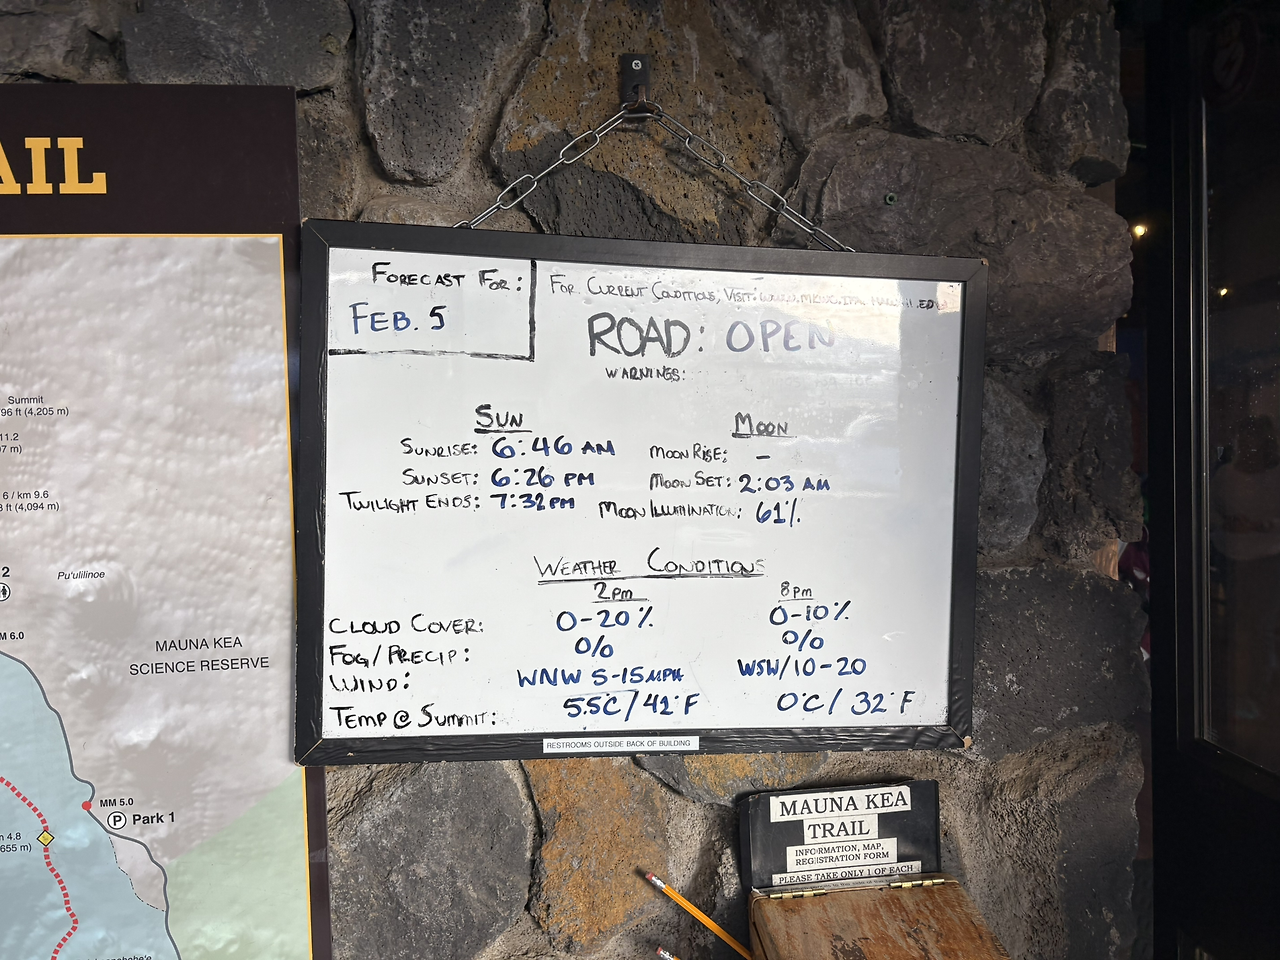 AIL
Summit
96 ft (4,205 m)
11.2
7 m)
6 / km 9.6
3 ft (4,094 m)
2
Pu'ulilinoe
M 6.0
MAUNA KEA
SCIENCE RESERVE
MM 5.0
P Park 1
4.8
655 m)
FORECAST FOR:
FEB. 5
FOR CURRENT CONDITIONS, VISIT:
ROAD: OPEN
WARNINGS:
SUN
SUNRISE: 6:46 AM
SUNSET: 6:26 PM
TWILIGHT ENDS: 7:32 PM
MOON
MOON RISE: –
MOON SET: 2:03 AM
MOON ILLUMINATION: 61%
WEATHER CONDITIONS
2PM 8PM
CLOUD COVER: 0-20% 0-10%
FOG/PRECIP: 0% 0%
WIND: WNW 5-15MPH WSW/10-20
TEMP @ SUMMIT: 5.5°C/42°F 0°C/32°F
RESTROOMS OUTSIDE BACK OF BUILDING
MAUNA KEA
TRAIL
INFORMATION, MAP,
REGISTRATION FORM
PLEASE TAKE ONLY 1 OF EACH